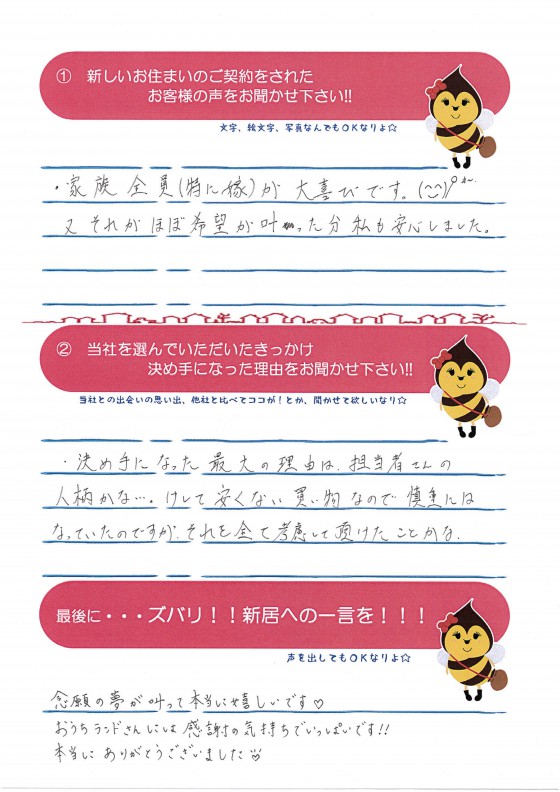 ① 新しいお住まいのご契約をされた
お客様の声をお聞かせ下さい!!
文字、絵文字、写真なんでもOKなりよ☆
・家族全員(特に嫁)が大喜びです。(^^)
又それがほぼ希望が叶った分私も安心しました。
② 当社を選んでいただいたきっかけ
決め手になった理由をお聞かせ下さい!!
当社との出会いの思い出、他社と比べてココが!とか、聞かせて欲しいなり☆
・決め手になった最大の理由は、担当者さんの
人柄かな…。けして安くない買い物なので慎重には
なっていたのですが、それを全て考慮して頂けたことかな。
最後に・・・ズバリ！！新居への一言を！！！
声を出してもOKなりよ☆
念願の夢が叶って本当に嬉しいです♡
おうちランドさんには感謝の気持ちでいっぱいです!!
本当にありがとうございました